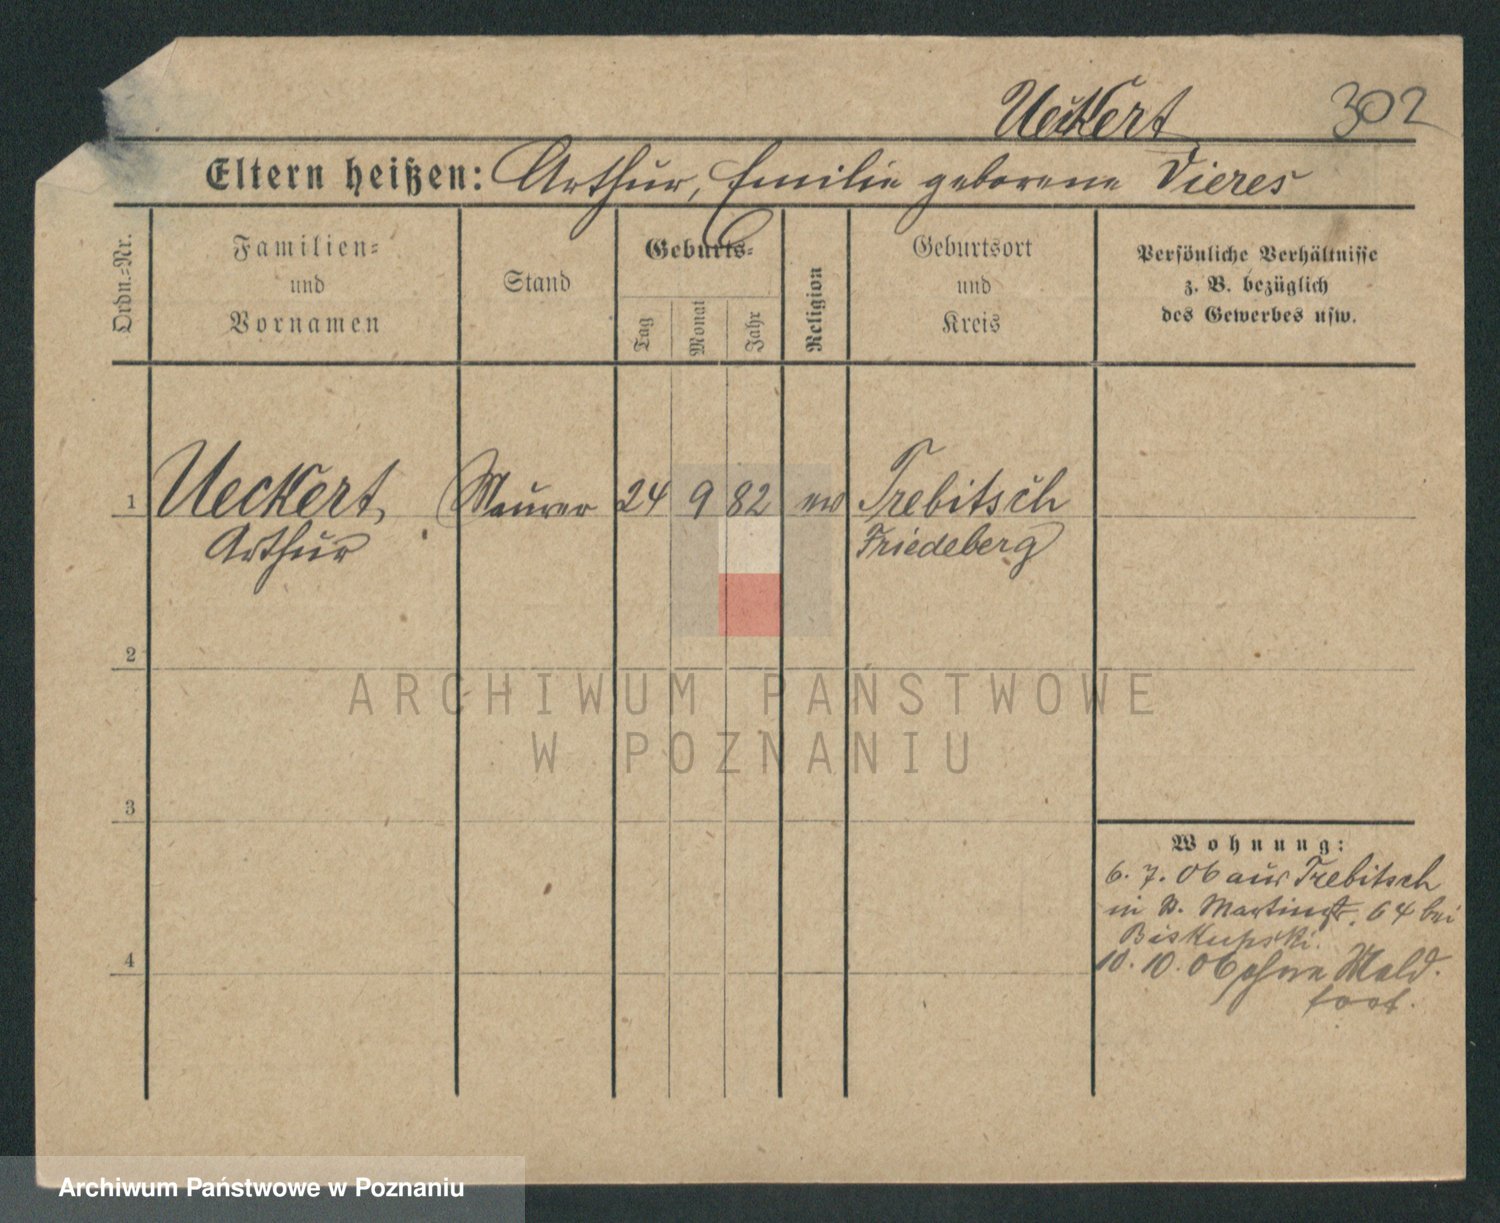 Ueckert
302
Eltern heißen: Arthur, Emilie geborene Vieres
Ordn.=Nr.
Familien=
und
Vornamen
Stand
Geburts=
Tag
Monat
Jahr
Religion
Geburtsort
und
Kreis
Persönliche Verhältnisse
z. B. bezüglich
des Gewerbes usw.
1 Ueckert, Maurer 24 9 82 ev Trebitsch
Arthur Friedeberg
2
3
4
Wohnung:
6. 7. 06 aus Trebitsch
in P. Martinstr. 64 bei
Biskupski.
10. 10. 06 ohne Meld.
fort.
ARCHIWUM PAŃSTWOWE
W POZNANIU
Archiwum Państwowe w Poznaniu